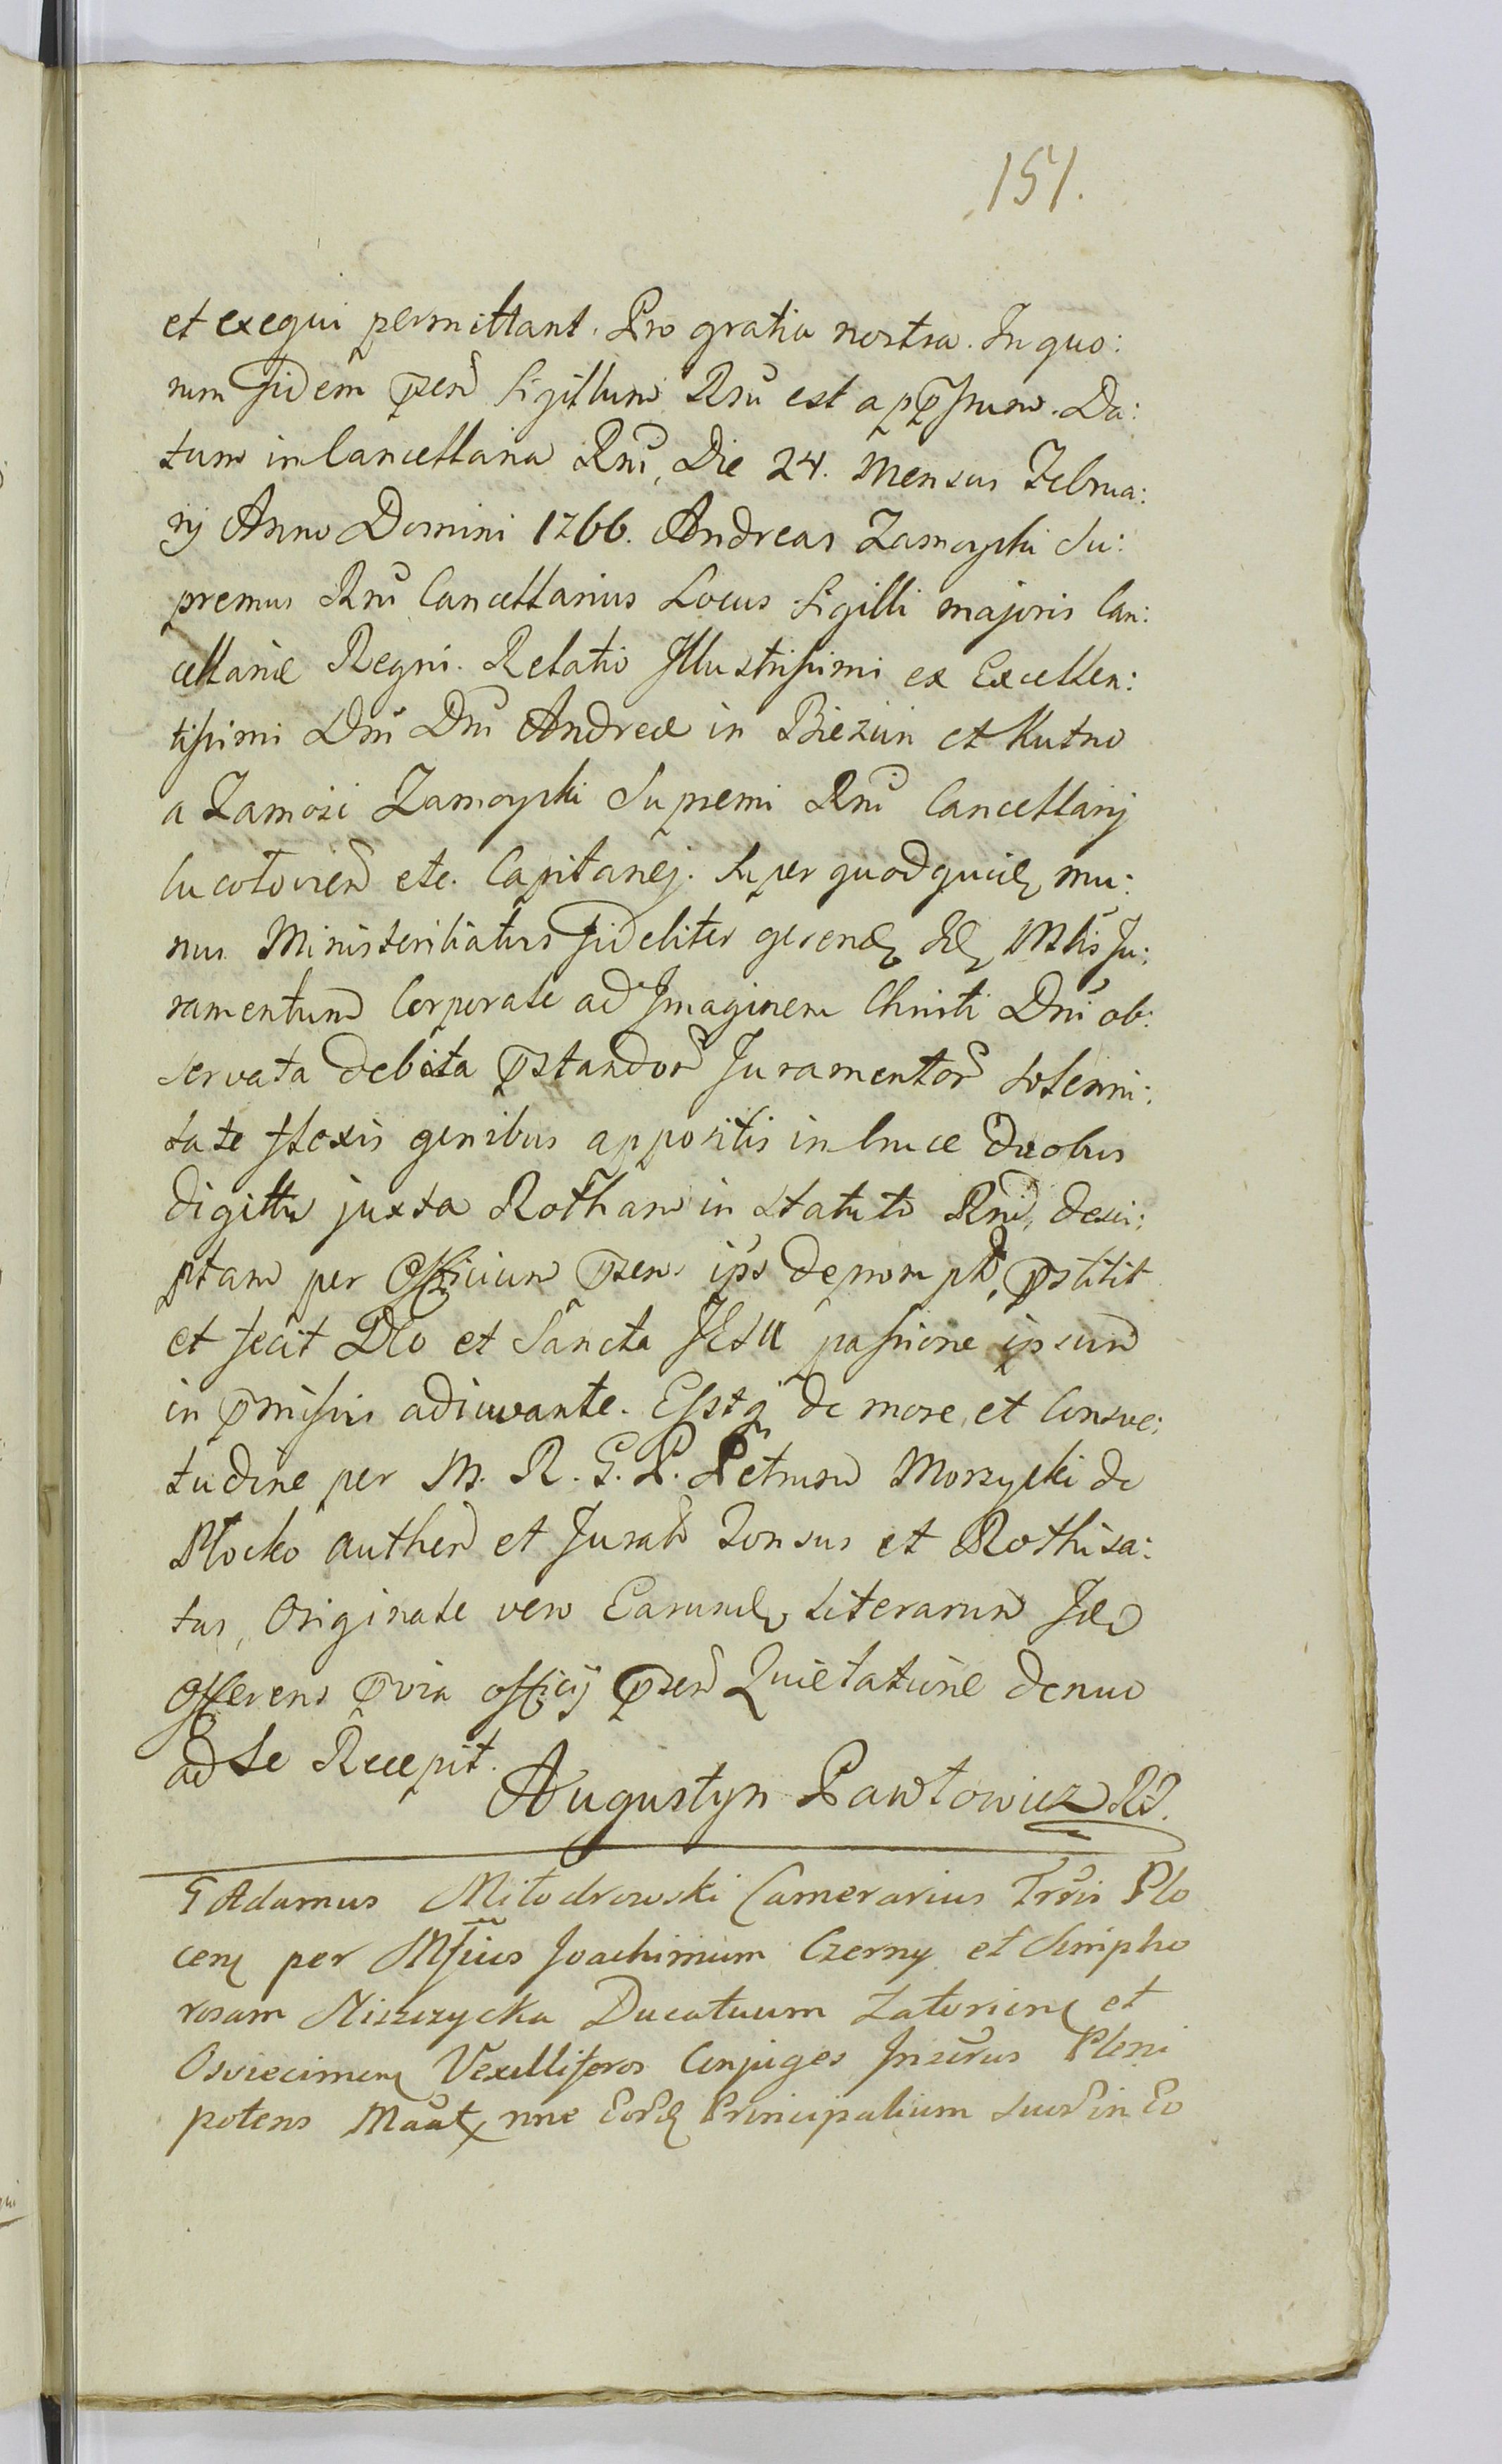 151.
et exequi permittant. Pro gratia nostra. In quo:
rum fidem pzen Sigillum Rni est appssum. Da:
tum in Cancellaria Rni, Die 24. Mensis Februa:
rij Anno Domini 1766. Andreas Zamoyski Su:
premus Rni Cancellarius Locus Sigilli majoris Can:
cellariæ Regni. Relatio Illustrissimi ex Excellen:
tissimi Dni Dni Andreæ in Biezun et Kutno
a Zamość Zamoyski Supremi Rni Cancellarij
etc. Capitanej. Super quodquid mu:
nus Ministerialatus fideliter gerend Id Mlis Ju:
ramentum Corporale ad Imaginem Christi Dni ob:
servata debita pstandor Juramentor solenni:
tate flexis genibus appositis in Cruce duobus
digittis juxta Rotham in Statuto Rni, descri:
ptam per Officium pzens ipso deprompt, pstitit
et fecit DEo et Sancta JESU passione ipsum
in pmissis adiuvante. Estq de more, et Consve:
tudine per M. R. G. P. Petrum Morzycki de
Płocko authen et Jurato Tonsus et Rothisa:
tus, Originale vero Earund Literarum Id
Offerens pvia officij pzen Quietatione denuo
ad Se Recepit.
Augustyn Pawłowicz RP.
G Adamus Miłodrowski Camerarius Trris Plo
cen per Mfcus Joachimum Czerny et Simpho
rosam Miszczycka Ducatuum Zatorien et
Osviecimen Vexilliferos Conjuges Inscrus Pleni
potens nne Eord Principalium suor in Eo